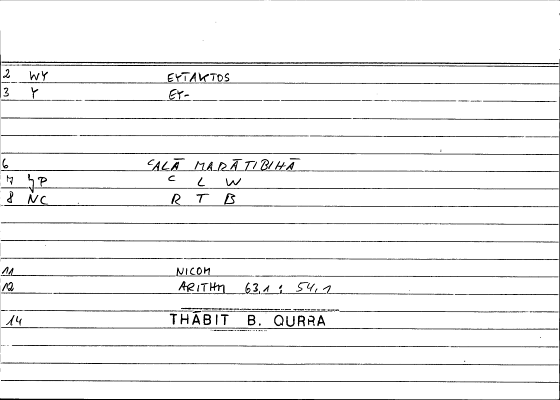 2 WY EYTAKTOS
3 Y EY-
6 ʿALĀ MARĀTIBIHĀ
7 ʿ L W
8 NC R T B
11 NICOM
12 ARITHM 63,1 : 54,1
14 THĀBIT B. QURRA